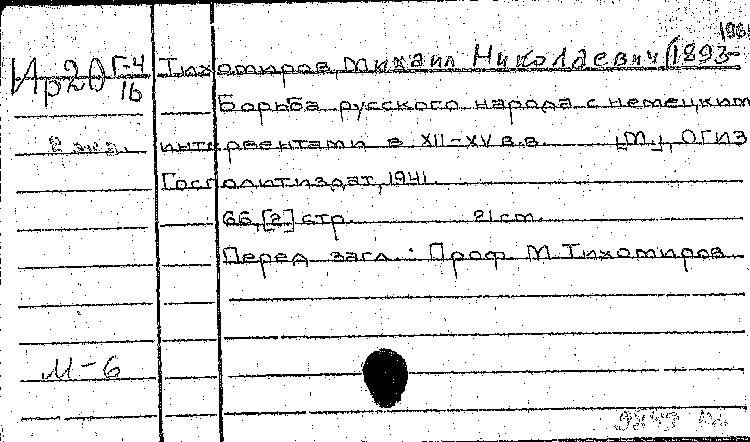 Ир20 Г-4/16
Тихомиров, Михаил Николаевич (1893-
Борьба русского народа с немецким
2 экз. интервентами в XII-XV в.в. [М.], ОГИЗ
Госполитиздат, 1941.
66, [2] стр. 21 ст.
Перед загл.: Проф. М. Тихомиров
М-6